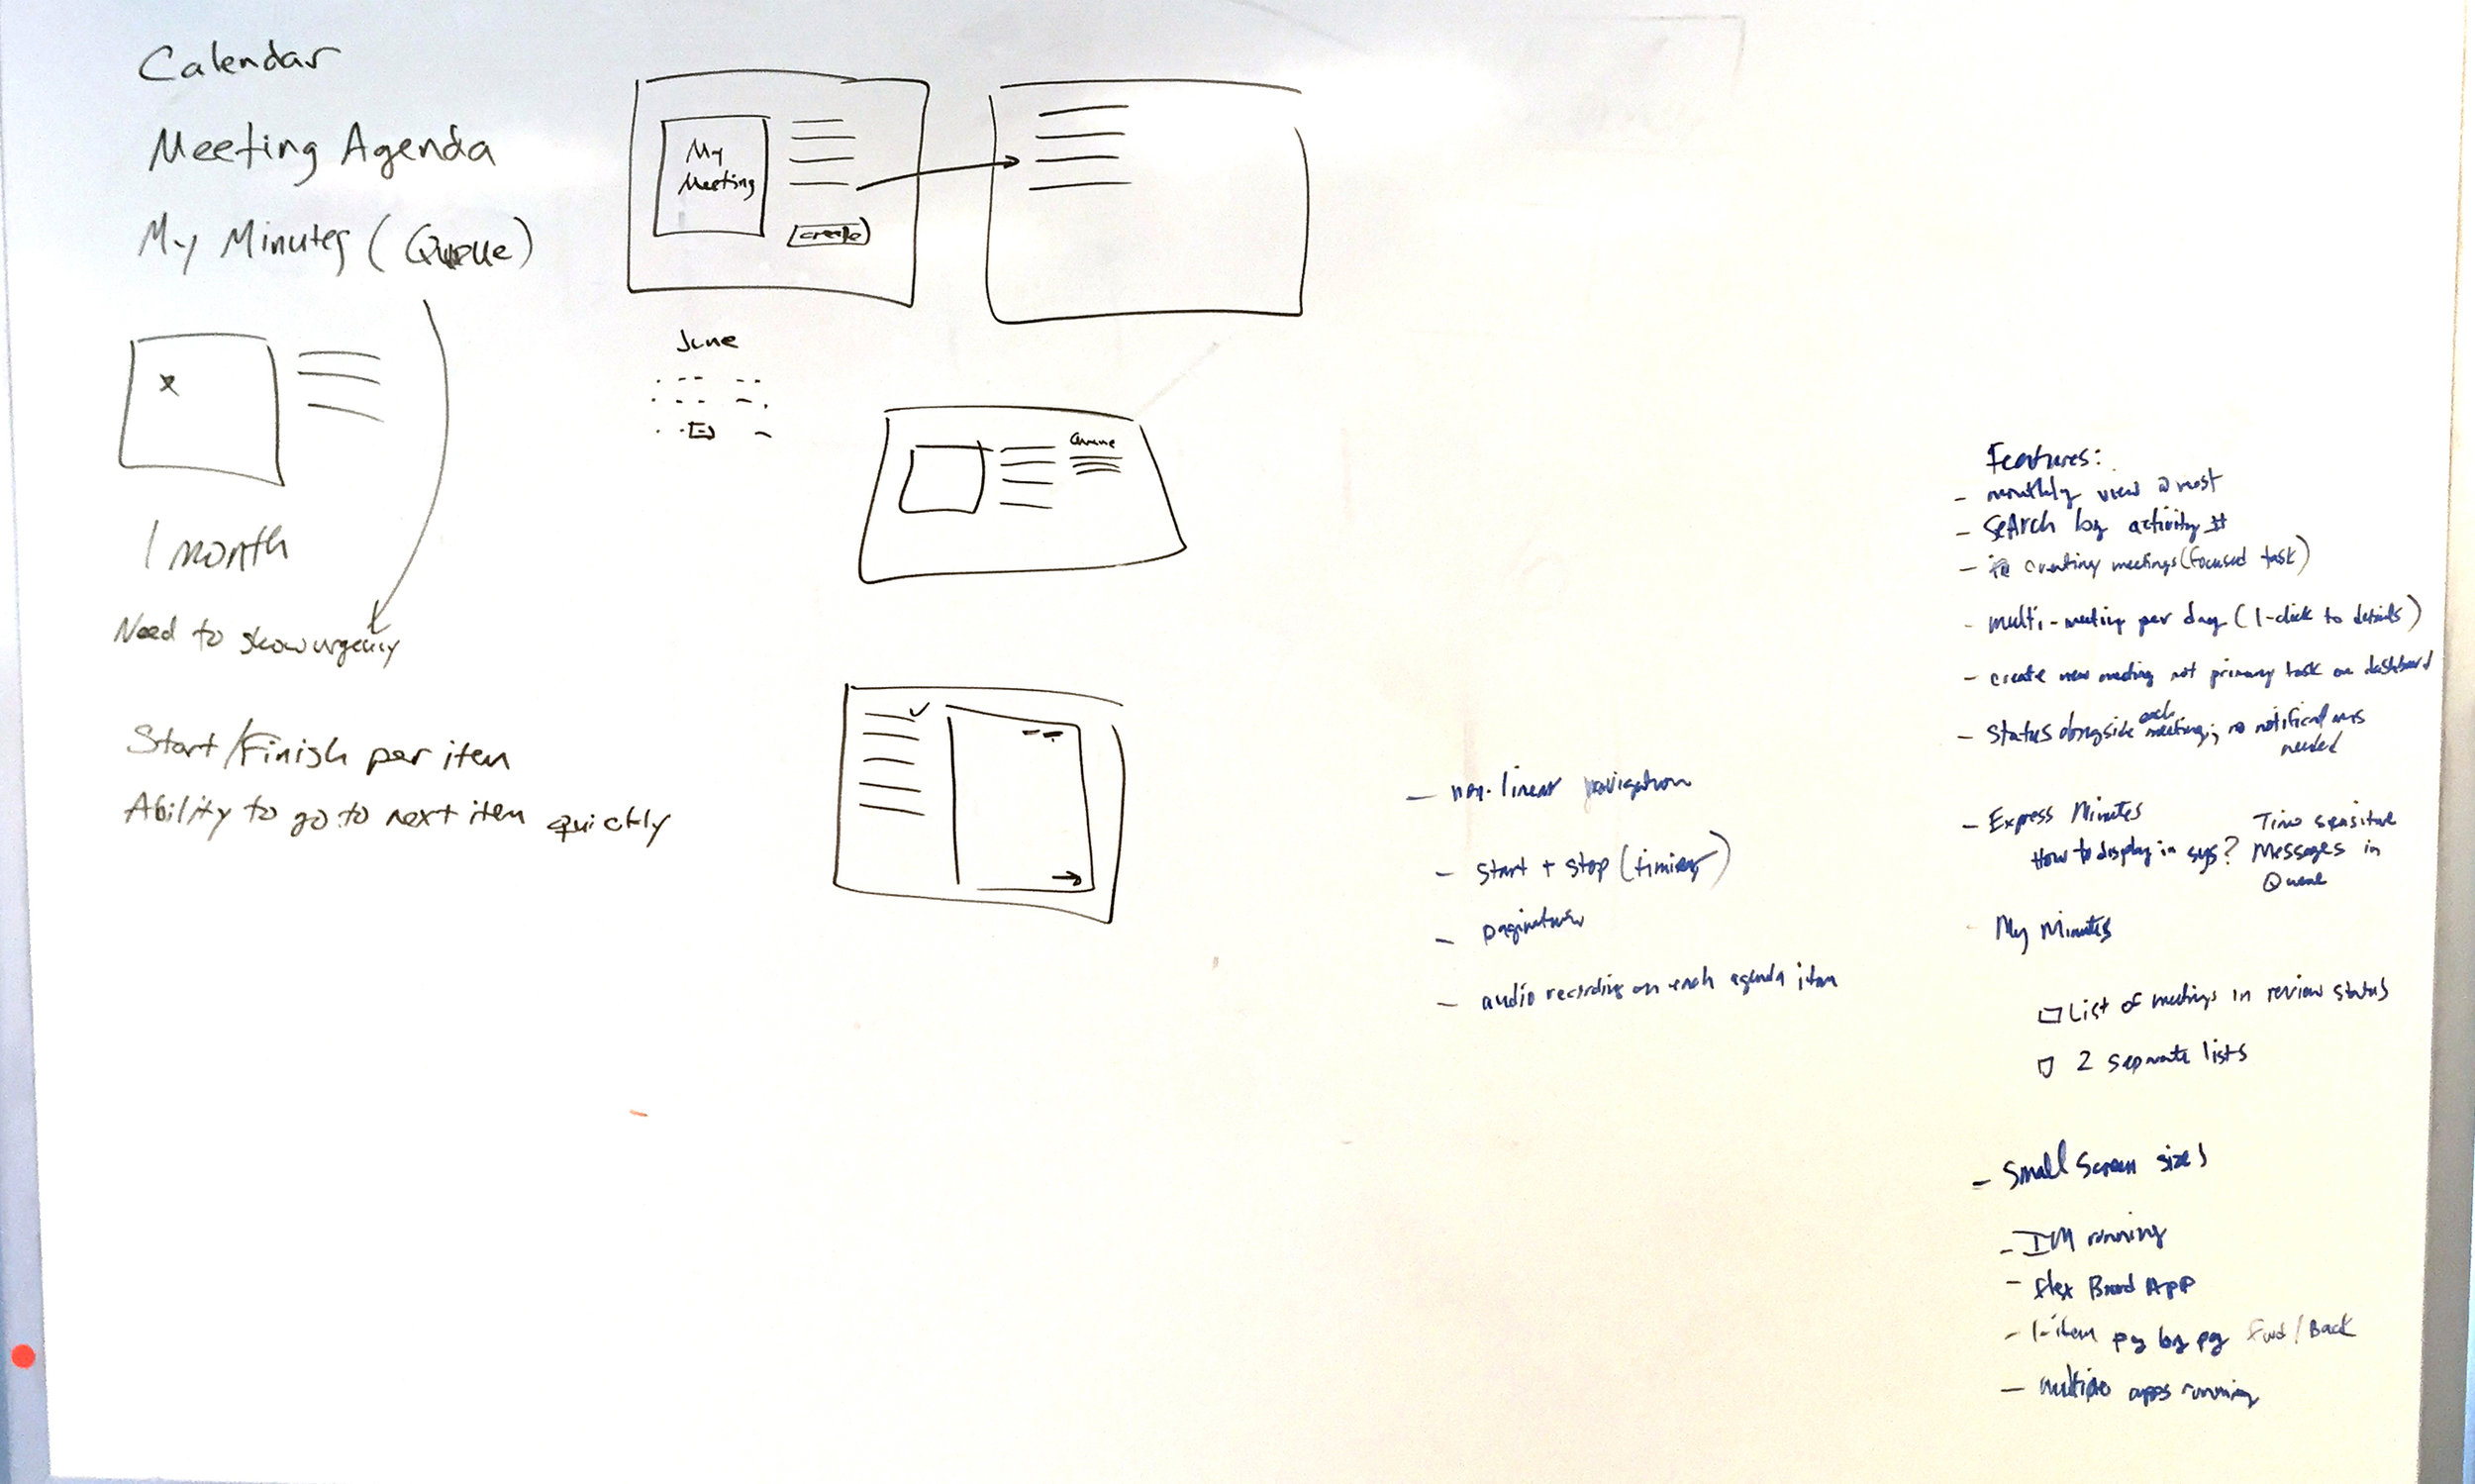 Calendar
Meeting Agenda
My Minutes (Queue)
1 month
Need to show urgency
Start/Finish per item
Ability to go to next item quickly
My
Meeting
create
June
Queue
- non-linear navigation
- start + stop (timing)
- pagination
- audio recording on each agenda item
Features:
- monthly view @ most
- Search by activity #
- creating meetings (focused task)
- multi-meeting per day (1-click to details)
- create new meeting not primary task on dashboard
- Status alongside each meeting; no notifications
needed
- Express Minutes
How to display in sys?
Time sensitive
Messages in
Queue
- My Minutes
List of meetings in review status
2 separate lists
- Small Screen sizes
- IM running
- flex Board App
- 1-item pg by pg Fwd/Back
- multiple apps running